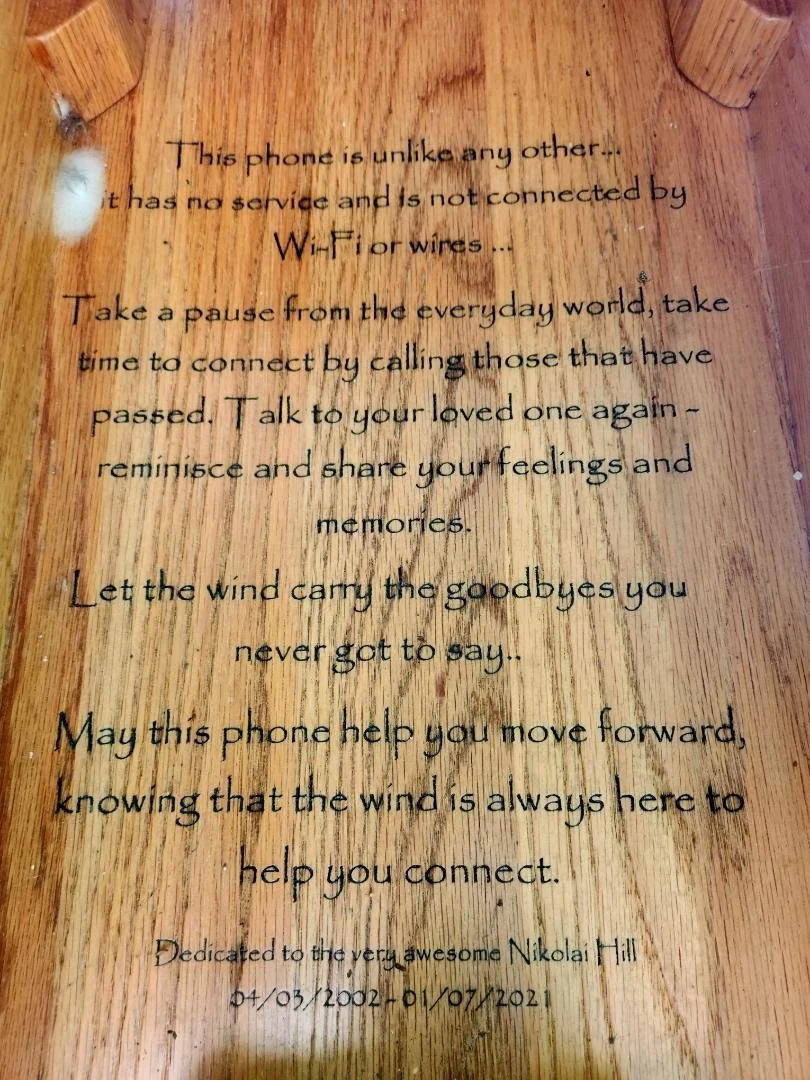 This phone is unlike any other...
it has no service and is not connected by
Wi-Fi or wires ...
Take a pause from the everyday world, take
time to connect by calling those that have
passed. Talk to your loved one again -
reminisce and share your feelings and
memories.
Let the wind carry the goodbyes you
never got to say..
May this phone help you move forward,
knowing that the wind is always here to
help you connect.
Dedicated to the very awesome Nikolai Hill
04/03/2002-01/07/2021